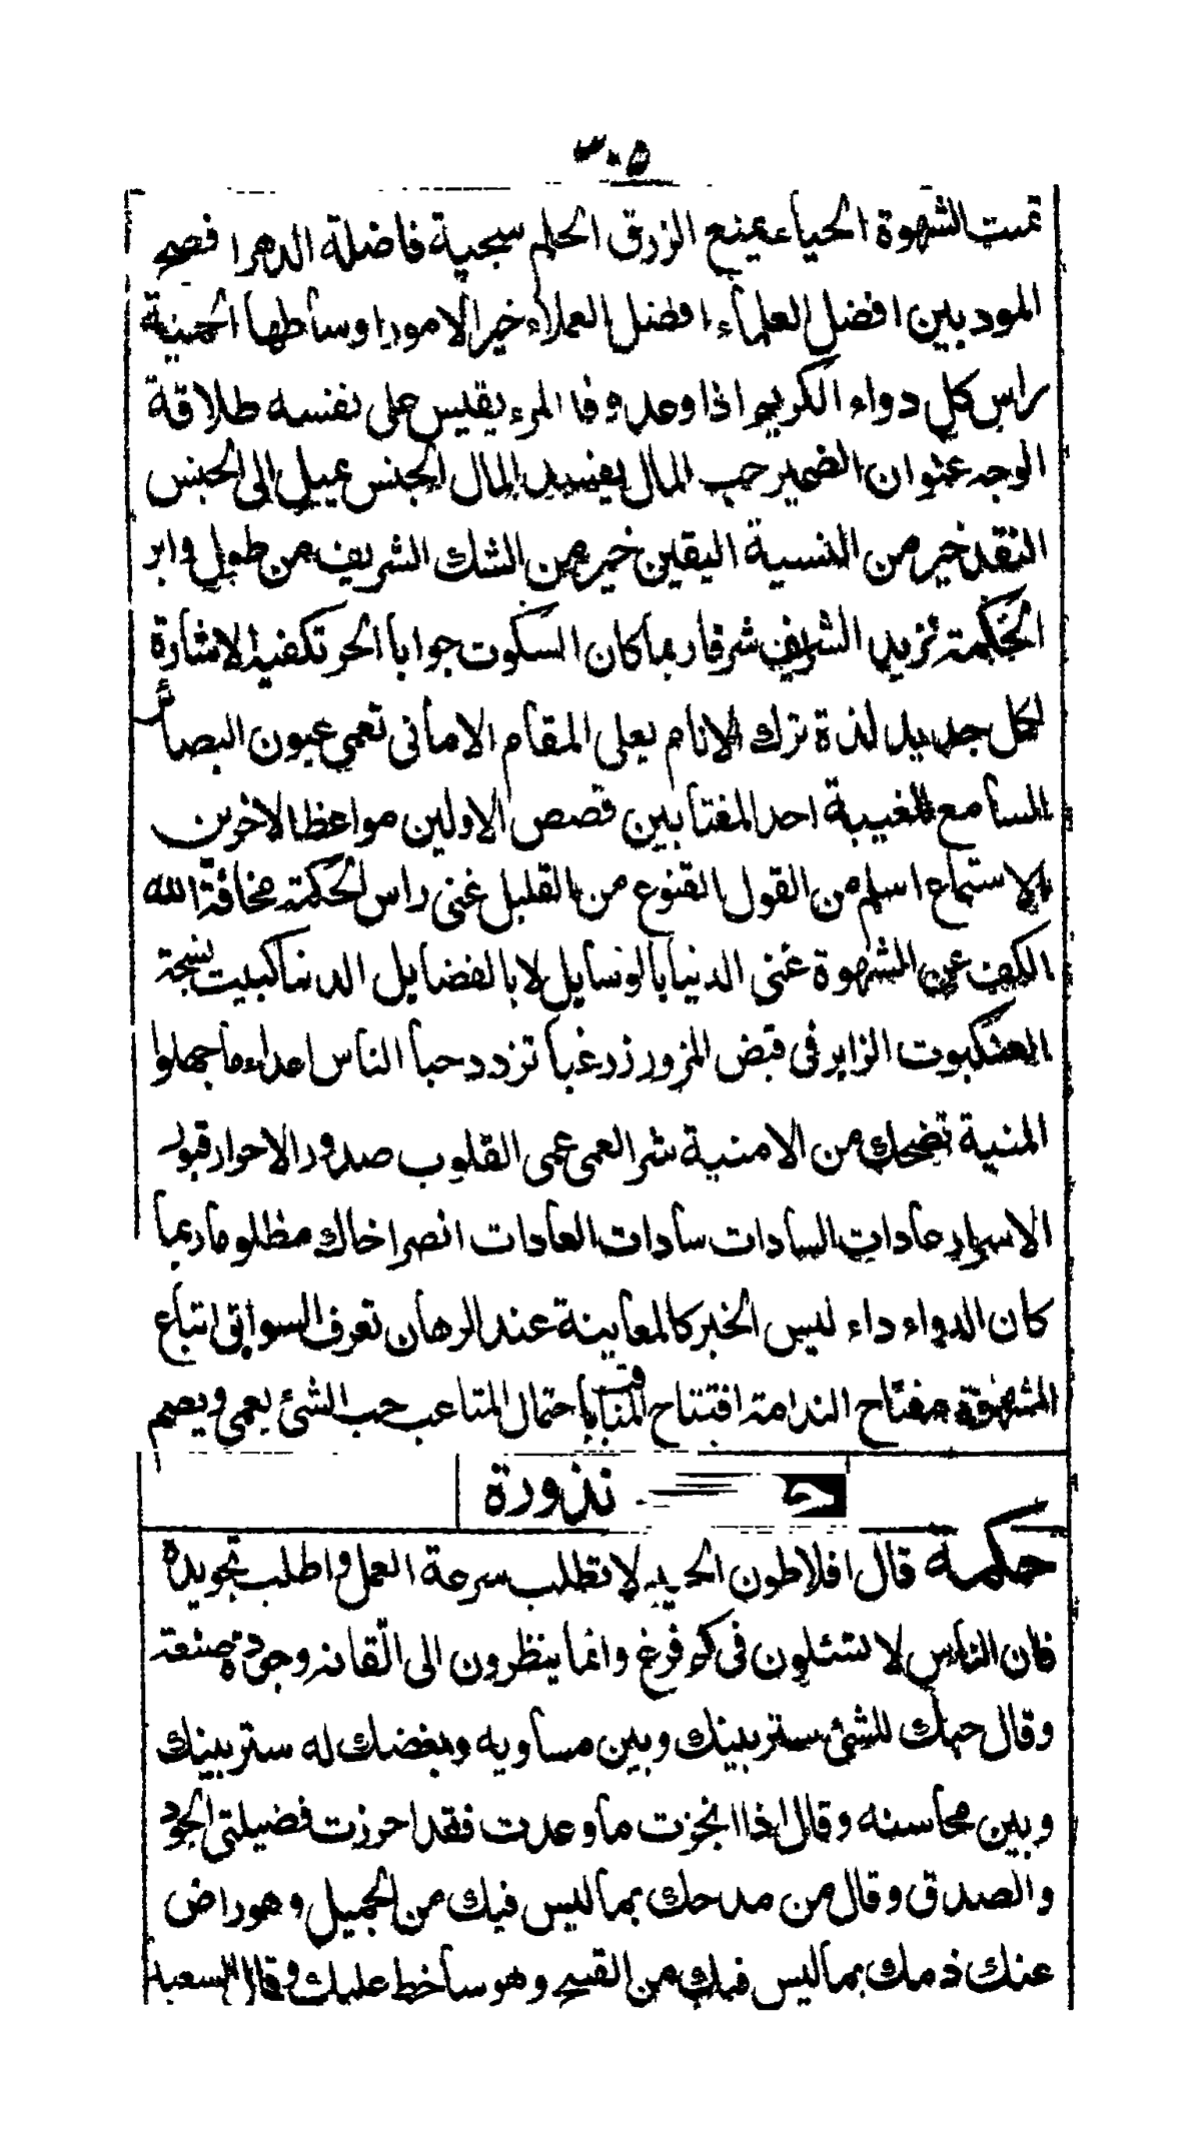 ٣٠٥
تميت الشهوة الحياء يمنع الرزق الحلم سجية فاضلة الدهر افصح
المودبين افضل العلماء افضل العملاء خير الامور اوساطها الحمية
راس كل دواء الكريم اذا وعد وفا المرء يقيس على نفسه طلاقة
الوجه عنوان الضمير حب المال يفسد المال الجنس يميل الى الجنس
النقد خير من النسية اليقين خير من الشك الشريف من طول وابر
الحكمة تزيد الشريف شرفا ربما كان السكوت جوابا الحر تكفيه الاشارة
لكل جديد لذة ترك الانام يعلى المقام الامانى تعمى عيون البصائر
السامع للغيبة احد المغتابين قصص الاولين مواعظ الاخرين
الاستماع اسلم من القول القنوع من القليل غنى راس الحكمة مخافة الله
الكف عن الشهوة غنى الدنيا بالوسايل لا بالفضايل الدنيا كبيت نسجته
العنكبوت الزاير فى قبض المزور زر غبا تزدد حبا الناس اعداء ما جهلوا
المنية تضحك من الامنية شر العمى عمى القلوب صدور الاحرار قبور
الاسرار عادات السادات سادات العادات انصر اخاك مظلوما ربما
كان الدواء داء ليس الخبر كالمعاينة عند الرهان تعرف السوابق اتباع
الشهوة مفتاح الندامة افتتاح المناقب باحتمال المتاعب حب الشئ يعمى ويصم
نذورة
حكمة قال افلاطون لا تطلب سرعة العمل واطلب تجويده
فان الناس لا تسئلون فى كم فرغ وانما ينظرون الى اتقانه وجودة صنعته
وقال حبك للشئ ستر بينك وبين مساويه وبغضك له ستر بينك
وبين محاسنه وقال اذا انجزت ما وعدت فقد احرزت فضيلتى الجود
والصدق وقال من مدحك بما ليس فيك من الجميل وهو راض
عنك ذمك بما ليس فيك من القبيح وهو ساخط عليك وقال السعيد